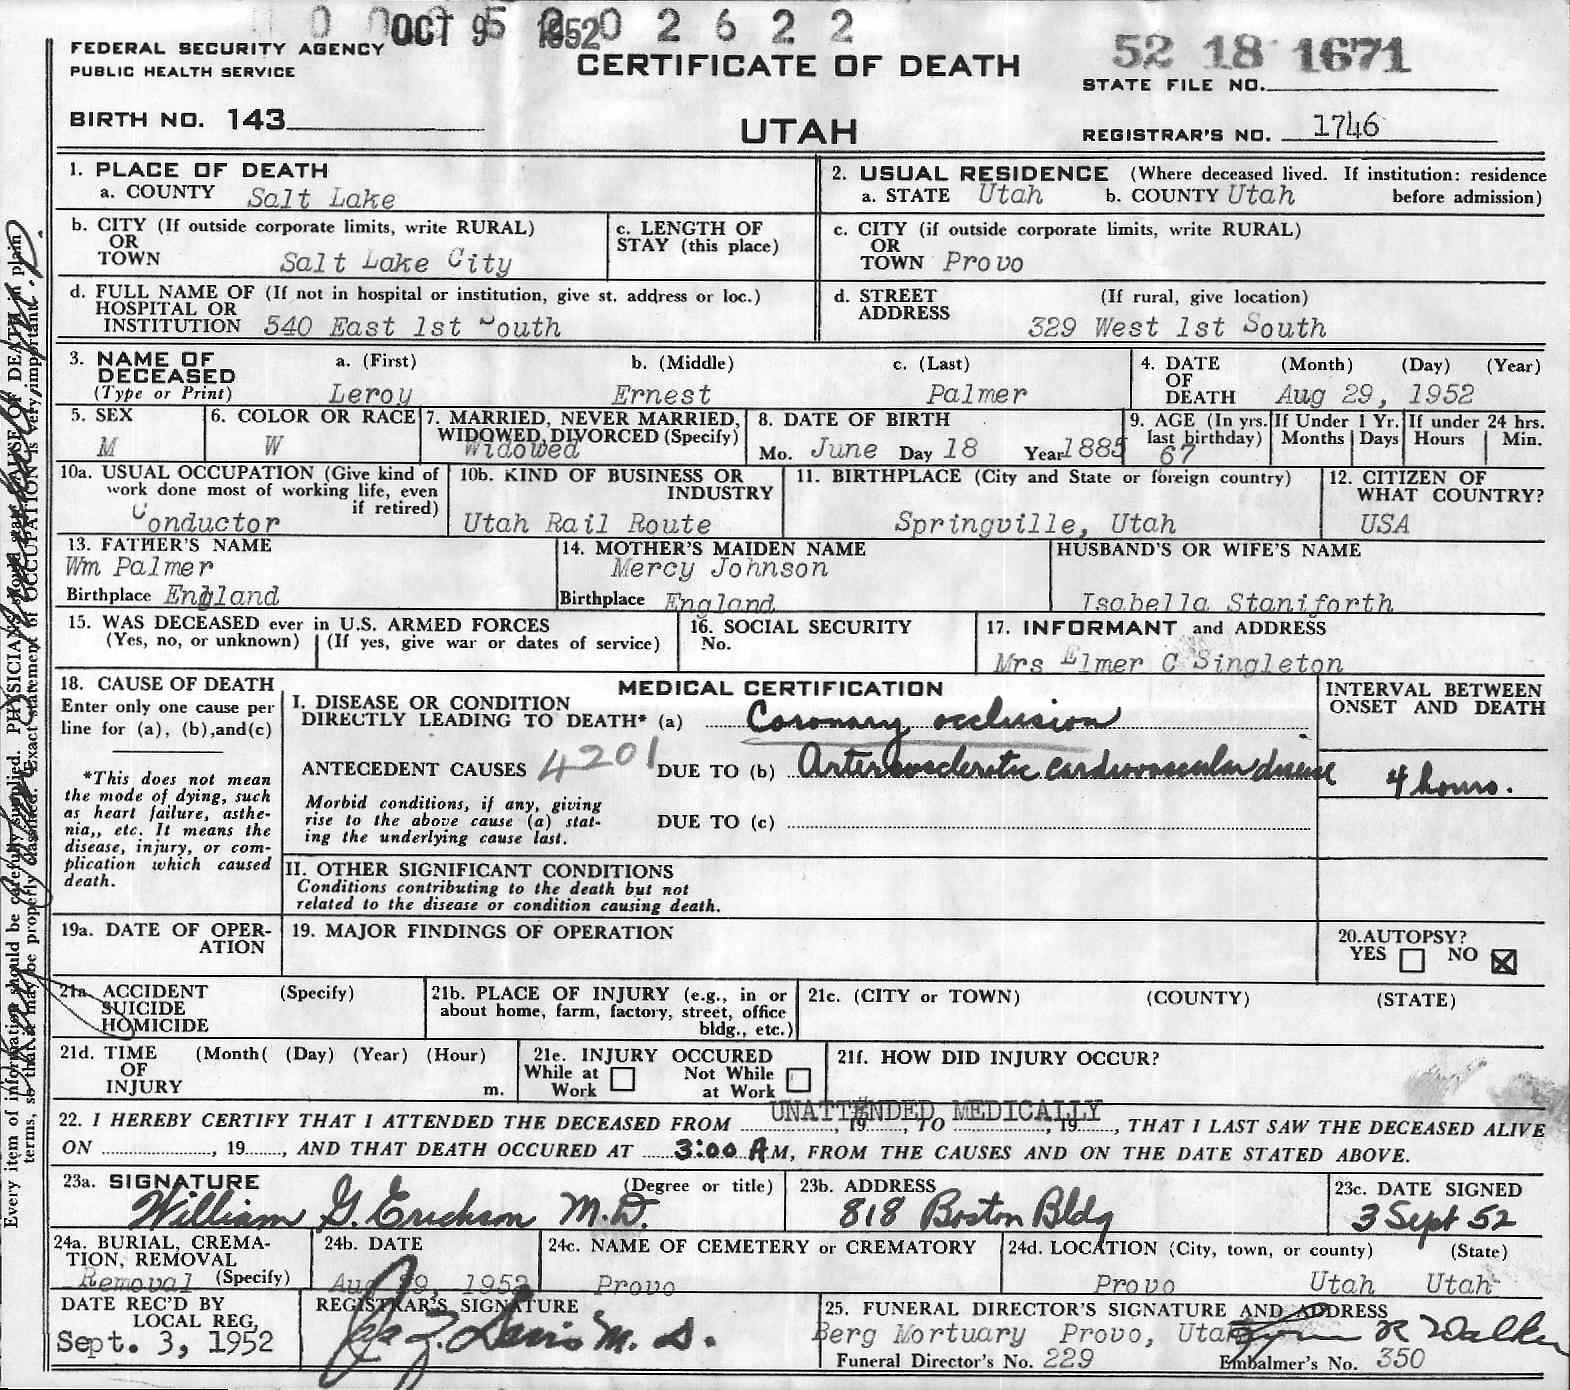 OCT 9 1952 0 2 6 2 2
FEDERAL SECURITY AGENCY
PUBLIC HEALTH SERVICE
CERTIFICATE OF DEATH
52 18 1671
STATE FILE NO.
BIRTH NO. 143
UTAH
REGISTRAR'S NO. 1746
1. PLACE OF DEATH
a. COUNTY Salt Lake
2. USUAL RESIDENCE (Where deceased lived. If institution: residence
a. STATE Utah b. COUNTY Utah before admission)
b. CITY (If outside corporate limits, write RURAL)
OR
TOWN Salt Lake City
c. LENGTH OF
STAY (this place)
c. CITY (if outside corporate limits, write RURAL)
OR
TOWN Provo
d. FULL NAME OF (If not in hospital or institution, give st. address or loc.)
HOSPITAL OR
INSTITUTION 540 East 1st South
d. STREET (If rural, give location)
ADDRESS 329 West 1st South
3. NAME OF a. (First) b. (Middle) c. (Last)
DECEASED
(Type or Print) Leroy Ernest Palmer
4. DATE (Month) (Day) (Year)
OF
DEATH Aug 29, 1952
5. SEX
M
6. COLOR OR RACE
W
7. MARRIED, NEVER MARRIED,
WIDOWED, DIVORCED (Specify)
Widowed
8. DATE OF BIRTH
Mo. June Day 18 Year 1885
9. AGE (In yrs.
last birthday)
67
If Under 1 Yr.
Months Days
If under 24 hrs.
Hours Min.
10a. USUAL OCCUPATION (Give kind of
work done most of working life, even
if retired)
Conductor
10b. KIND OF BUSINESS OR
INDUSTRY
Utah Rail Route
11. BIRTHPLACE (City and State or foreign country)
Springville, Utah
12. CITIZEN OF
WHAT COUNTRY?
USA
13. FATHER'S NAME
Wm Palmer
Birthplace England
14. MOTHER'S MAIDEN NAME
Mercy Johnson
Birthplace England
HUSBAND'S OR WIFE'S NAME
Isabella Staniforth
15. WAS DECEASED ever in U.S. ARMED FORCES
(Yes, no, or unknown) (If yes, give war or dates of service)
16. SOCIAL SECURITY
No.
17. INFORMANT and ADDRESS
Mrs Elmer C Singleton
18. CAUSE OF DEATH
Enter only one cause per
line for (a), (b),and(c)
*This does not mean
the mode of dying, such
as heart failure, asthe-
nia,, etc. It means the
disease, injury, or com-
plication which caused
death.
MEDICAL CERTIFICATION
I. DISEASE OR CONDITION
DIRECTLY LEADING TO DEATH* (a) Coronary occlusion
ANTECEDENT CAUSES 4201 DUE TO (b) Arteriosclerotic cardiovascular disease
Morbid conditions, if any, giving
rise to the above cause (a) stat-
ing the underlying cause last.
DUE TO (c)
INTERVAL BETWEEN
ONSET AND DEATH
4 hours.
II. OTHER SIGNIFICANT CONDITIONS
Conditions contributing to the death but not
related to the disease or condition causing death.
19a. DATE OF OPER-
ATION
19. MAJOR FINDINGS OF OPERATION
20.AUTOPSY?
YES NO
21a. ACCIDENT (Specify)
SUICIDE
HOMICIDE
21b. PLACE OF INJURY (e.g., in or
about home, farm, factory, street, office
bldg., etc.)
21c. (CITY or TOWN) (COUNTY) (STATE)
21d. TIME (Month( (Day) (Year) (Hour)
OF
INJURY m.
21e. INJURY OCCURED
While at Not While
Work at Work
21f. HOW DID INJURY OCCUR?
UNATTENDED MEDICALLY
22. I HEREBY CERTIFY THAT I ATTENDED THE DECEASED FROM ..., 19..., TO ..., 19..., THAT I LAST SAW THE DECEASED ALIVE
ON ..., 19..., AND THAT DEATH OCCURED AT 3:00 A M, FROM THE CAUSES AND ON THE DATE STATED ABOVE.
23a. SIGNATURE (Degree or title)
William G. Erickson M.D.
23b. ADDRESS
818 Boston Bldg
23c. DATE SIGNED
3 Sept 52
24a. BURIAL, CREMA-
TION, REMOVAL
Removal (Specify)
24b. DATE
Aug 29, 1952
24c. NAME OF CEMETERY or CREMATORY
Provo
24d. LOCATION (City, town, or county) (State)
Provo Utah Utah
DATE REC'D BY
LOCAL REG,
Sept. 3, 1952
REGISTRAR'S SIGNATURE
25. FUNERAL DIRECTOR'S SIGNATURE AND ADDRESS
Berg Mortuary Provo, Utah
Funeral Director's No. 229 Embalmer's No. 350
Every item of information should be carefully supplied. PHYSICIANS should state CAUSE OF DEATH in plain
terms, so that it may be properly classified. Exact statement of OCCUPATION is very important.